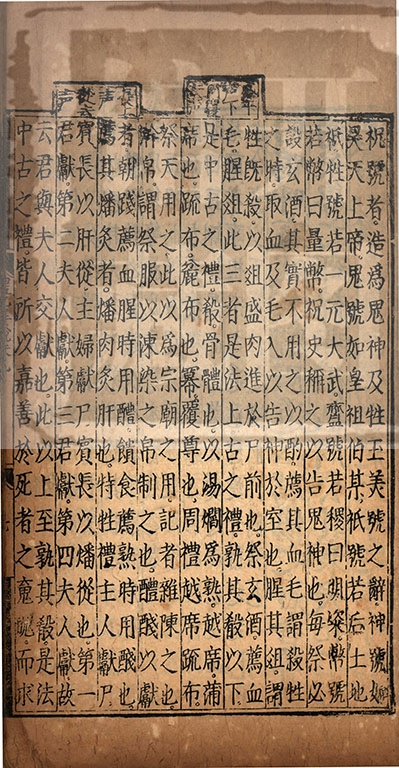 祝號者造爲鬼神及牲玉美號之辭神號如
昊天上帝鬼號如皇祖伯某祇號若后土地
祇牲號若一元大武齍號若稷曰明粢幣號
若幣曰量幣祝史稱之以告鬼神也每祭必
設玄酒其實不用之以酌薦其血毛謂殺牲
之特取血及毛入以告神於室也腥其俎謂
牲旣殺以俎盛肉進於尸前也祭玄酒薦血
毛腥俎此三者是法上古之禮孰其殽以下
是中古之禮殽骨體也以湯爓爲熟越席蒲
席也疏布麄布也冪覆尊也周禮越席疏布
祭天用之此以爲宗廟之用記者雜陳之也
澣帛謂祭服以湅染之帛制之也醴醆以獻
者朝踐薦血腥時用醴饋食薦熟時用醆也
薦其燔炙者燔肉炙肝也特牲禮主人獻尸
賓長以肝從主婦獻尸賓長以燔從也第一
君獻第二夫人獻第三君獻第四夫人獻故
云君與夫人交獻也此以上至孰其殽是法
中古之禮皆所以嘉善於死者之䰟魄而求